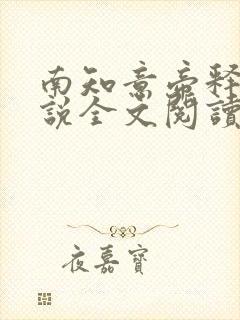 南知意帝释
説全文閲讀
夜嘉寳